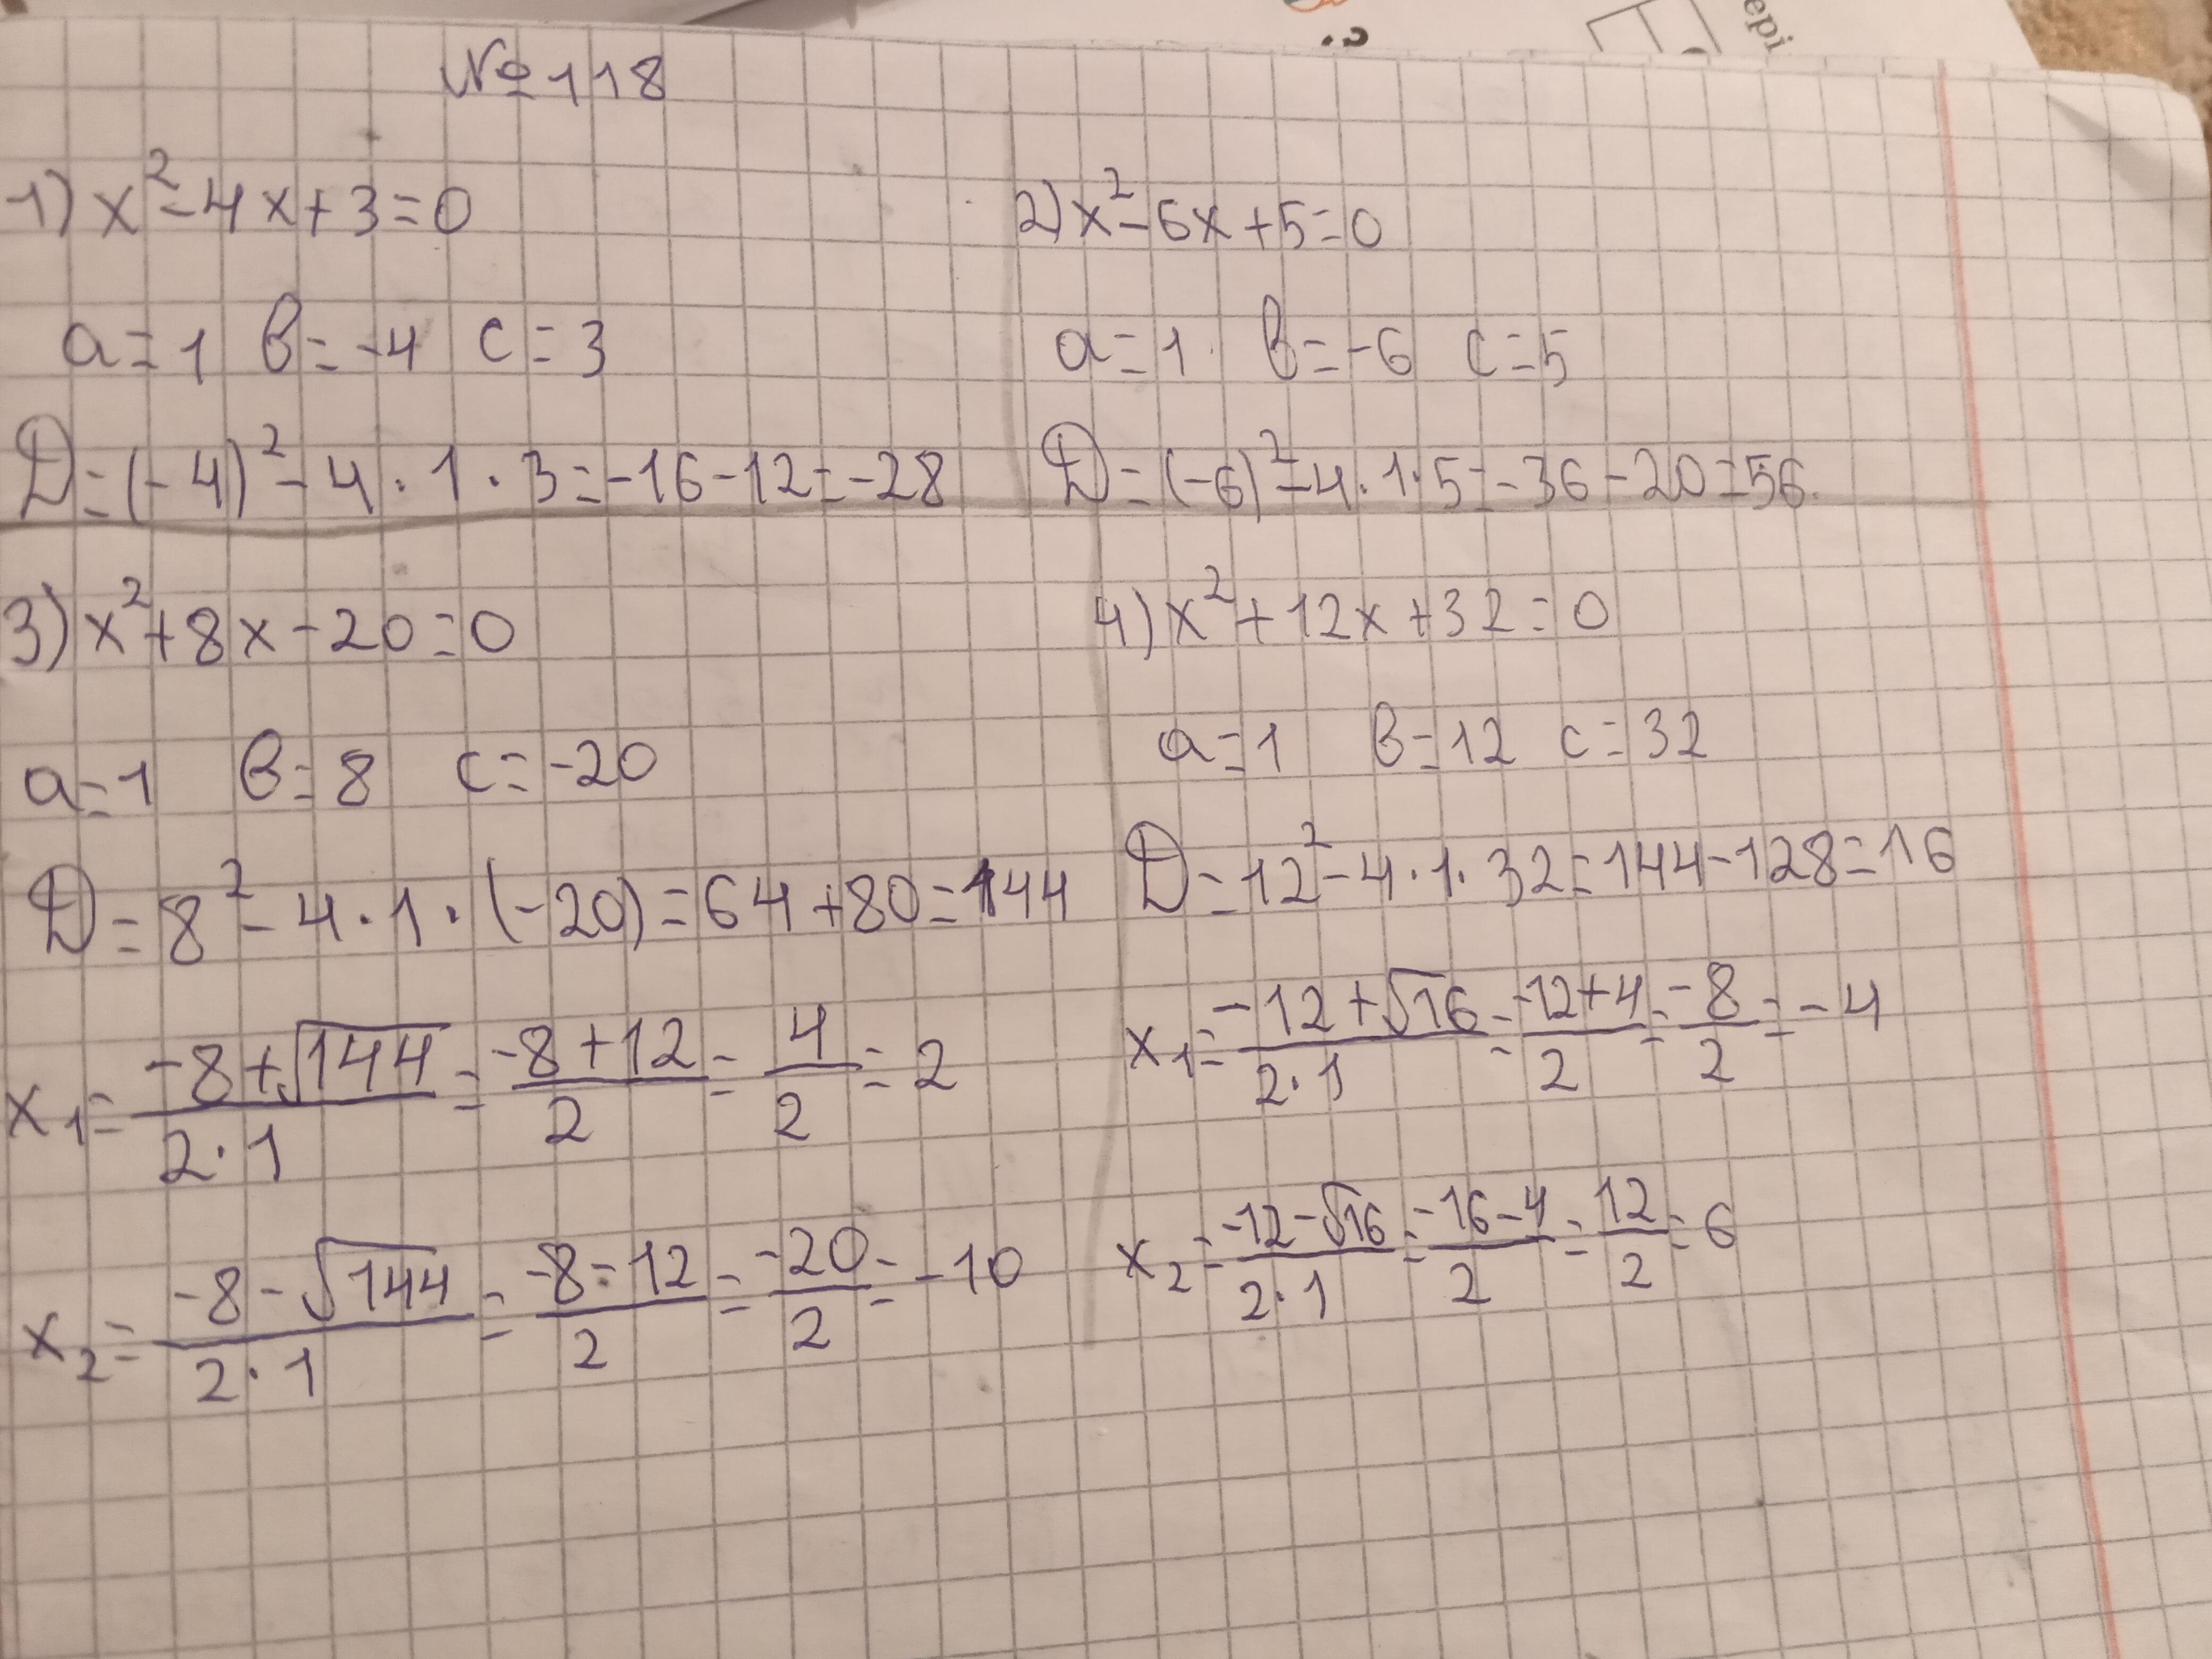 №118
1) x²-4x+3=0
a=1 в=-4 c=3
D=(-4)²-4·1·3=-16-12=-28
2) x²-6x+5=0
a=1 в=-6 c=5
D=(-6)²-4·1·5=-36-20=56
3) x²+8x-20=0
a=1 в=8 c=-20
D=8²-4·1·(-20)=64+80=144
x₁=(-8+√144)/(2·1)=(-8+12)/2=4/2=2
x₂=(-8-√144)/(2·1)=(-8-12)/2=-20/2=-10
4) x²+12x+32=0
a=1 в=12 c=32
D=12²-4·1·32=144-128=16
x₁=(-12+√16)/(2·1)=(-12+4)/2=-8/2=-4
x₂=(-12-√16)/(2·1)=(-16-4)/2=12/2=6
epi